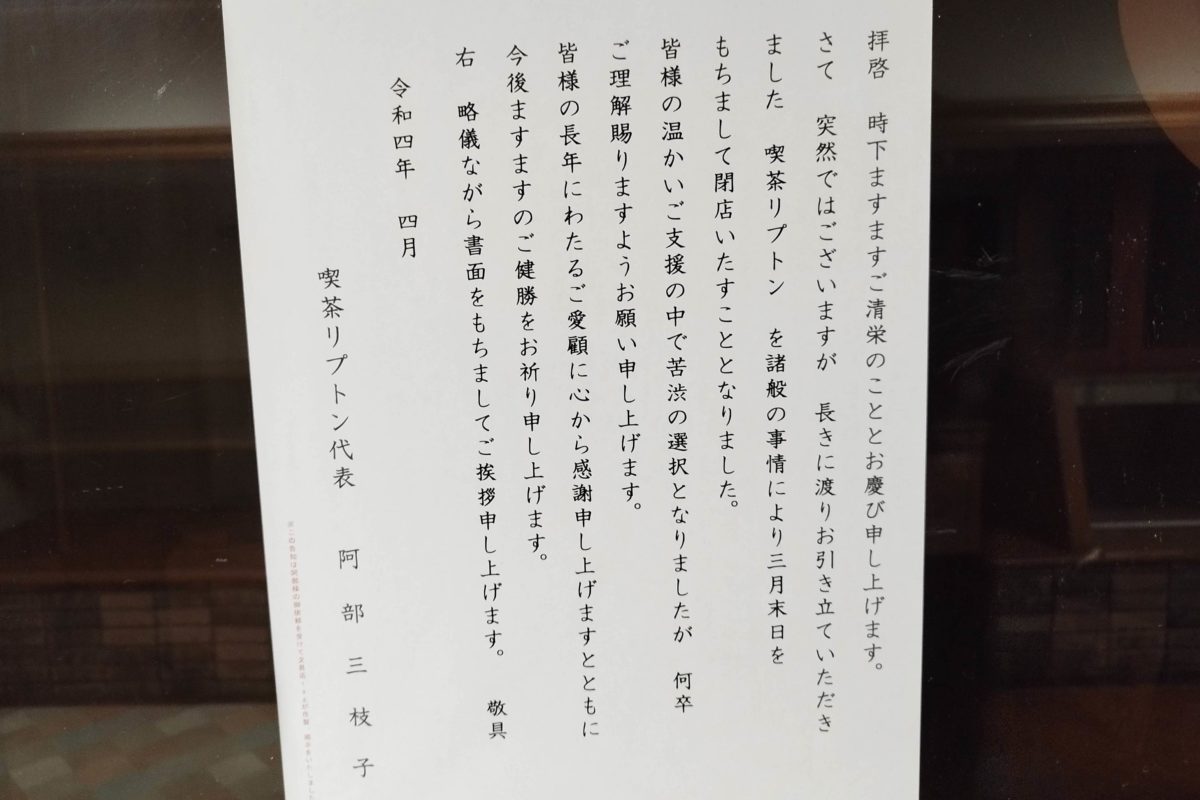 拝啓　時下ますますご清栄のこととお慶び申し上げます。
さて　突然ではございますが　長きに渡りお引き立ていただき
ました　喫茶リプトン　を諸般の事情により三月末日を
もちまして閉店いたすこととなりました。
皆様の温かいご支援の中で苦渋の選択となりましたが　何卒
ご理解賜りますようお願い申し上げます。
皆様の長年にわたるご愛顧に心から感謝申し上げますとともに
今後ますますのご健勝をお祈り申し上げます。
右　略儀ながら書面をもちましてご挨拶申し上げます。　敬具
令和四年　四月
喫茶リプトン代表　阿部三枝子
※この告知は阿部様の御依頼を受けて文具店